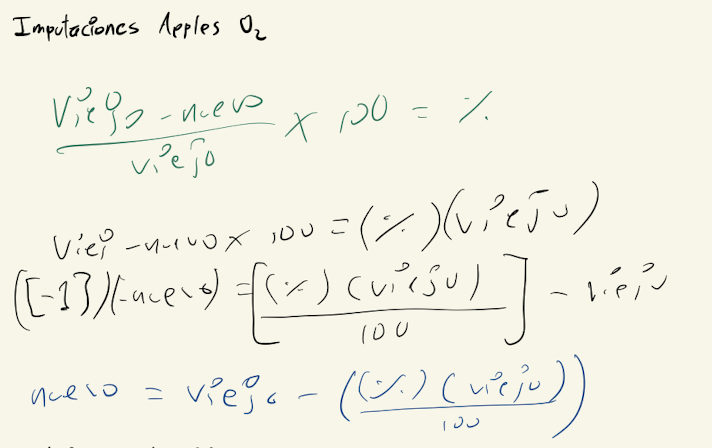 Imputaciones Apples O₂
Viejo - nuevo / viejo x 100 = %
Viej - nuevo x 100 = (%)(viejo)
([-1])(-nuevo) = [(%)(viejo) / 100] - viejo
nuevo = viejo - ((%)(viejo) / 100)